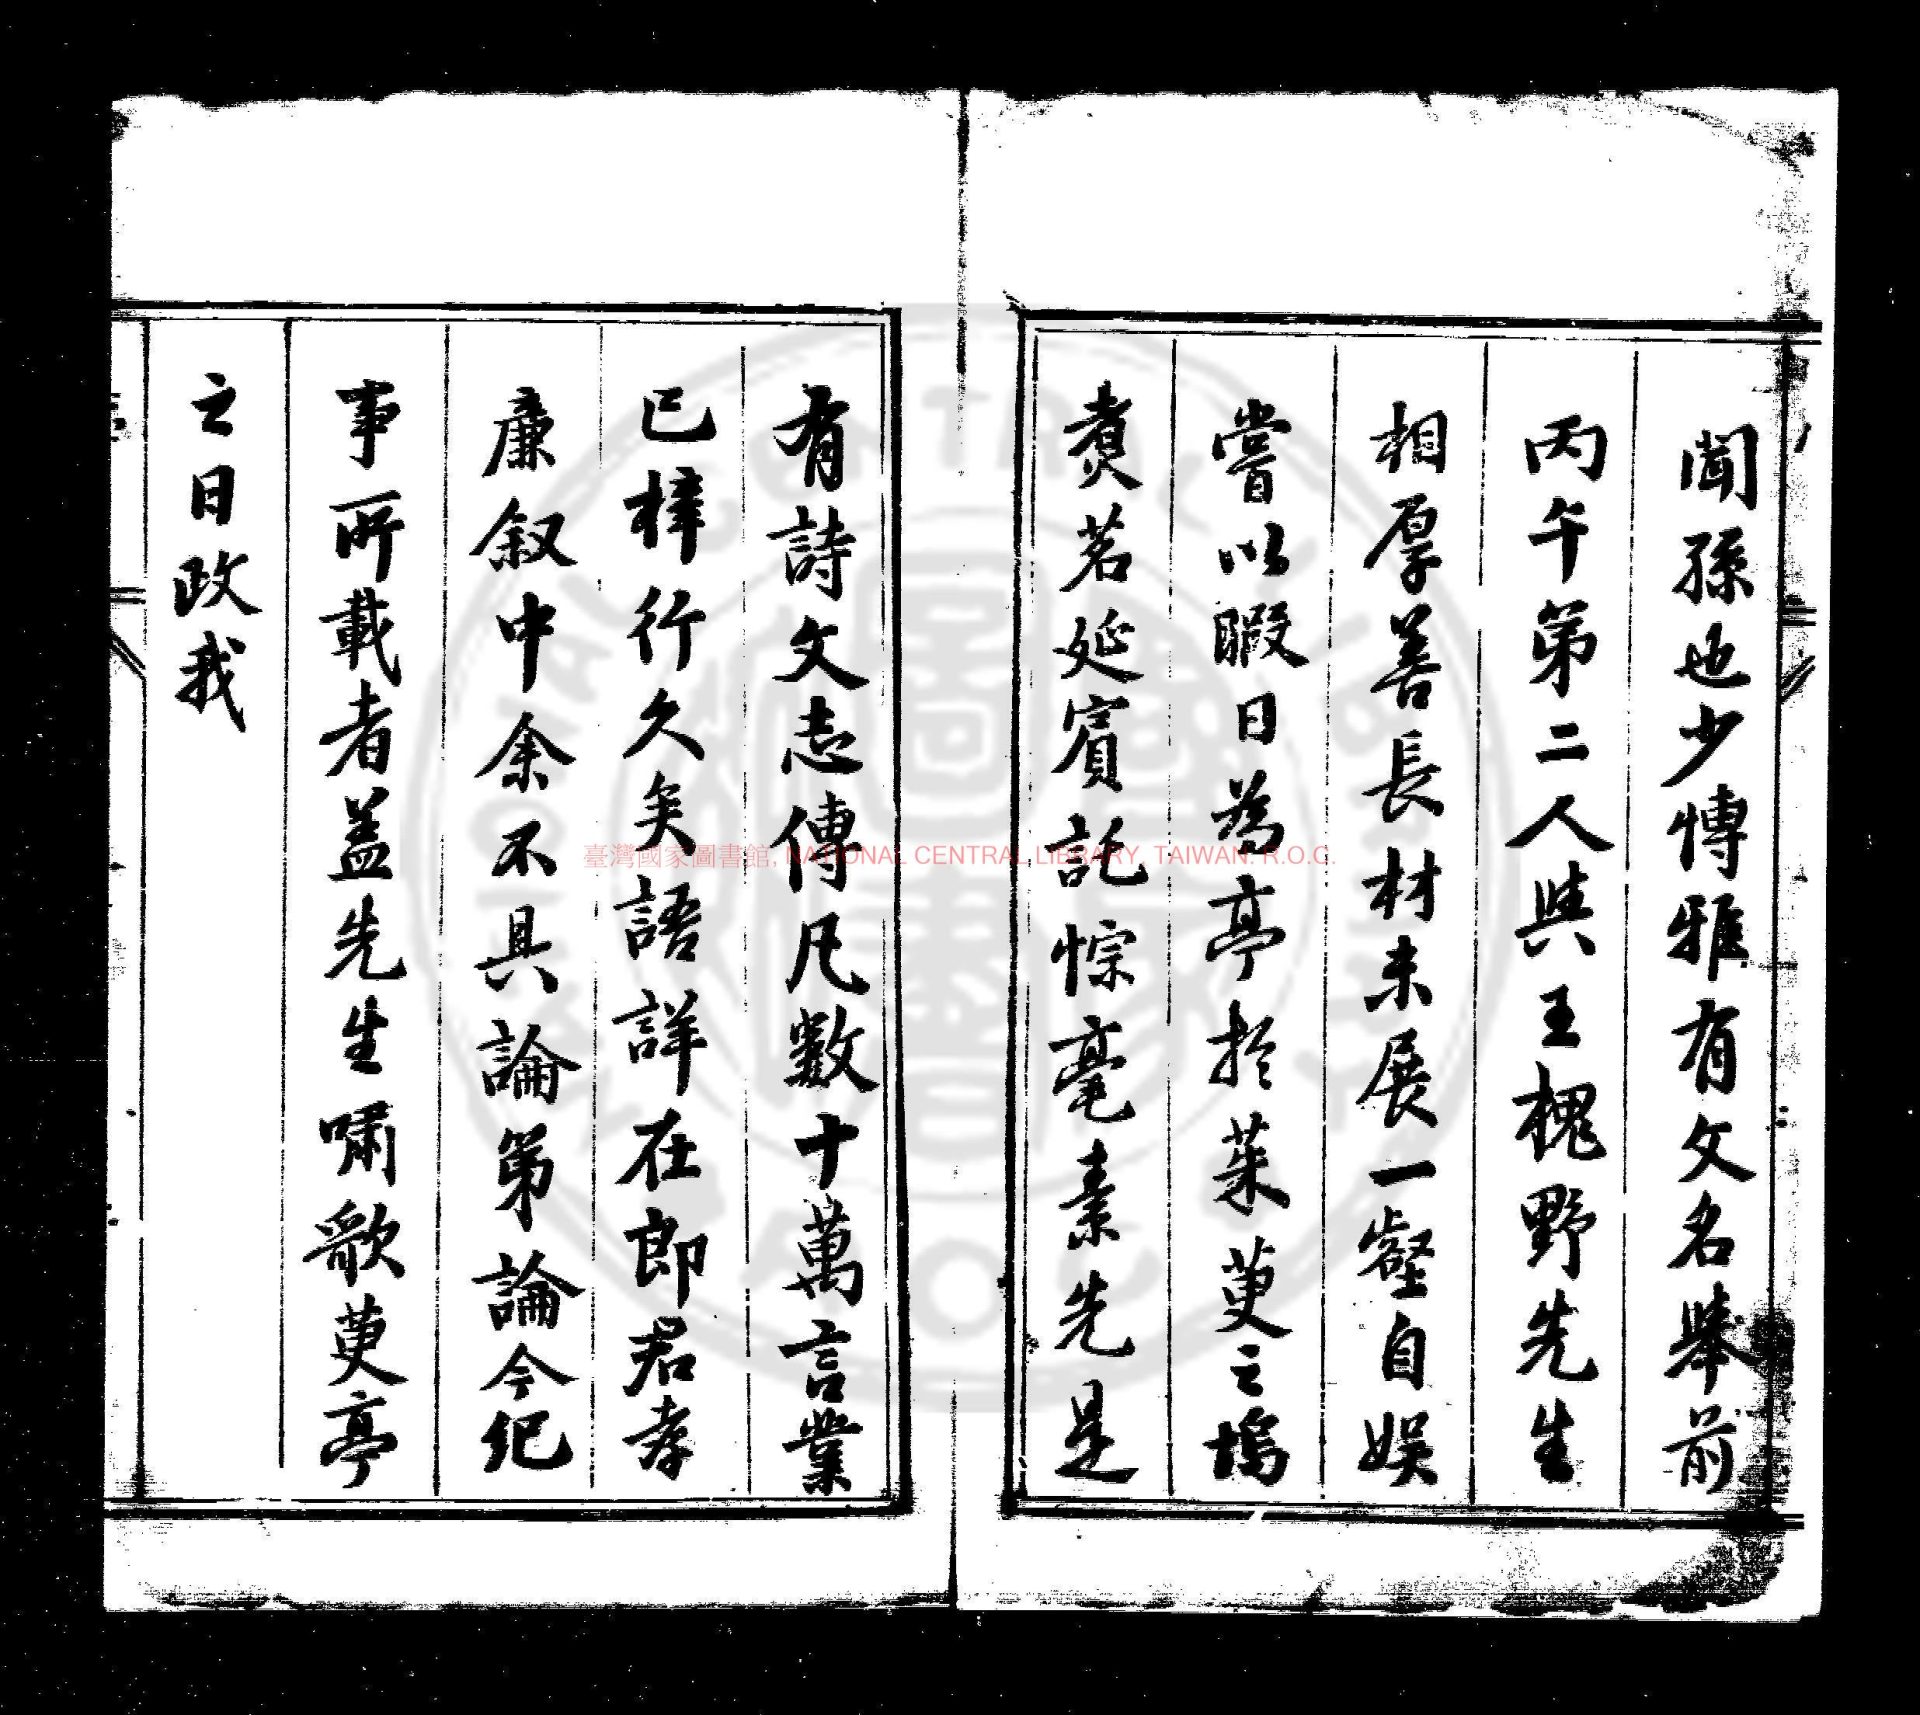 聞孫也少博雅有文名舉前
丙午第二人與王槐野先生
相厚善長材未展一壑自娛
嘗以暇日為亭於茱萸之塢
煮茗延賓託悰毫素先是
有詩文志傳凡數十萬言業
已梓行久矣語詳在郎君孝
廉叙中余不具論第論今紀
事所載者蓋先生嘯歌萸亭
之日政我
臺灣國家圖書館, NATIONAL CENTRAL LIBRARY, TAIWAN. R.O.C.